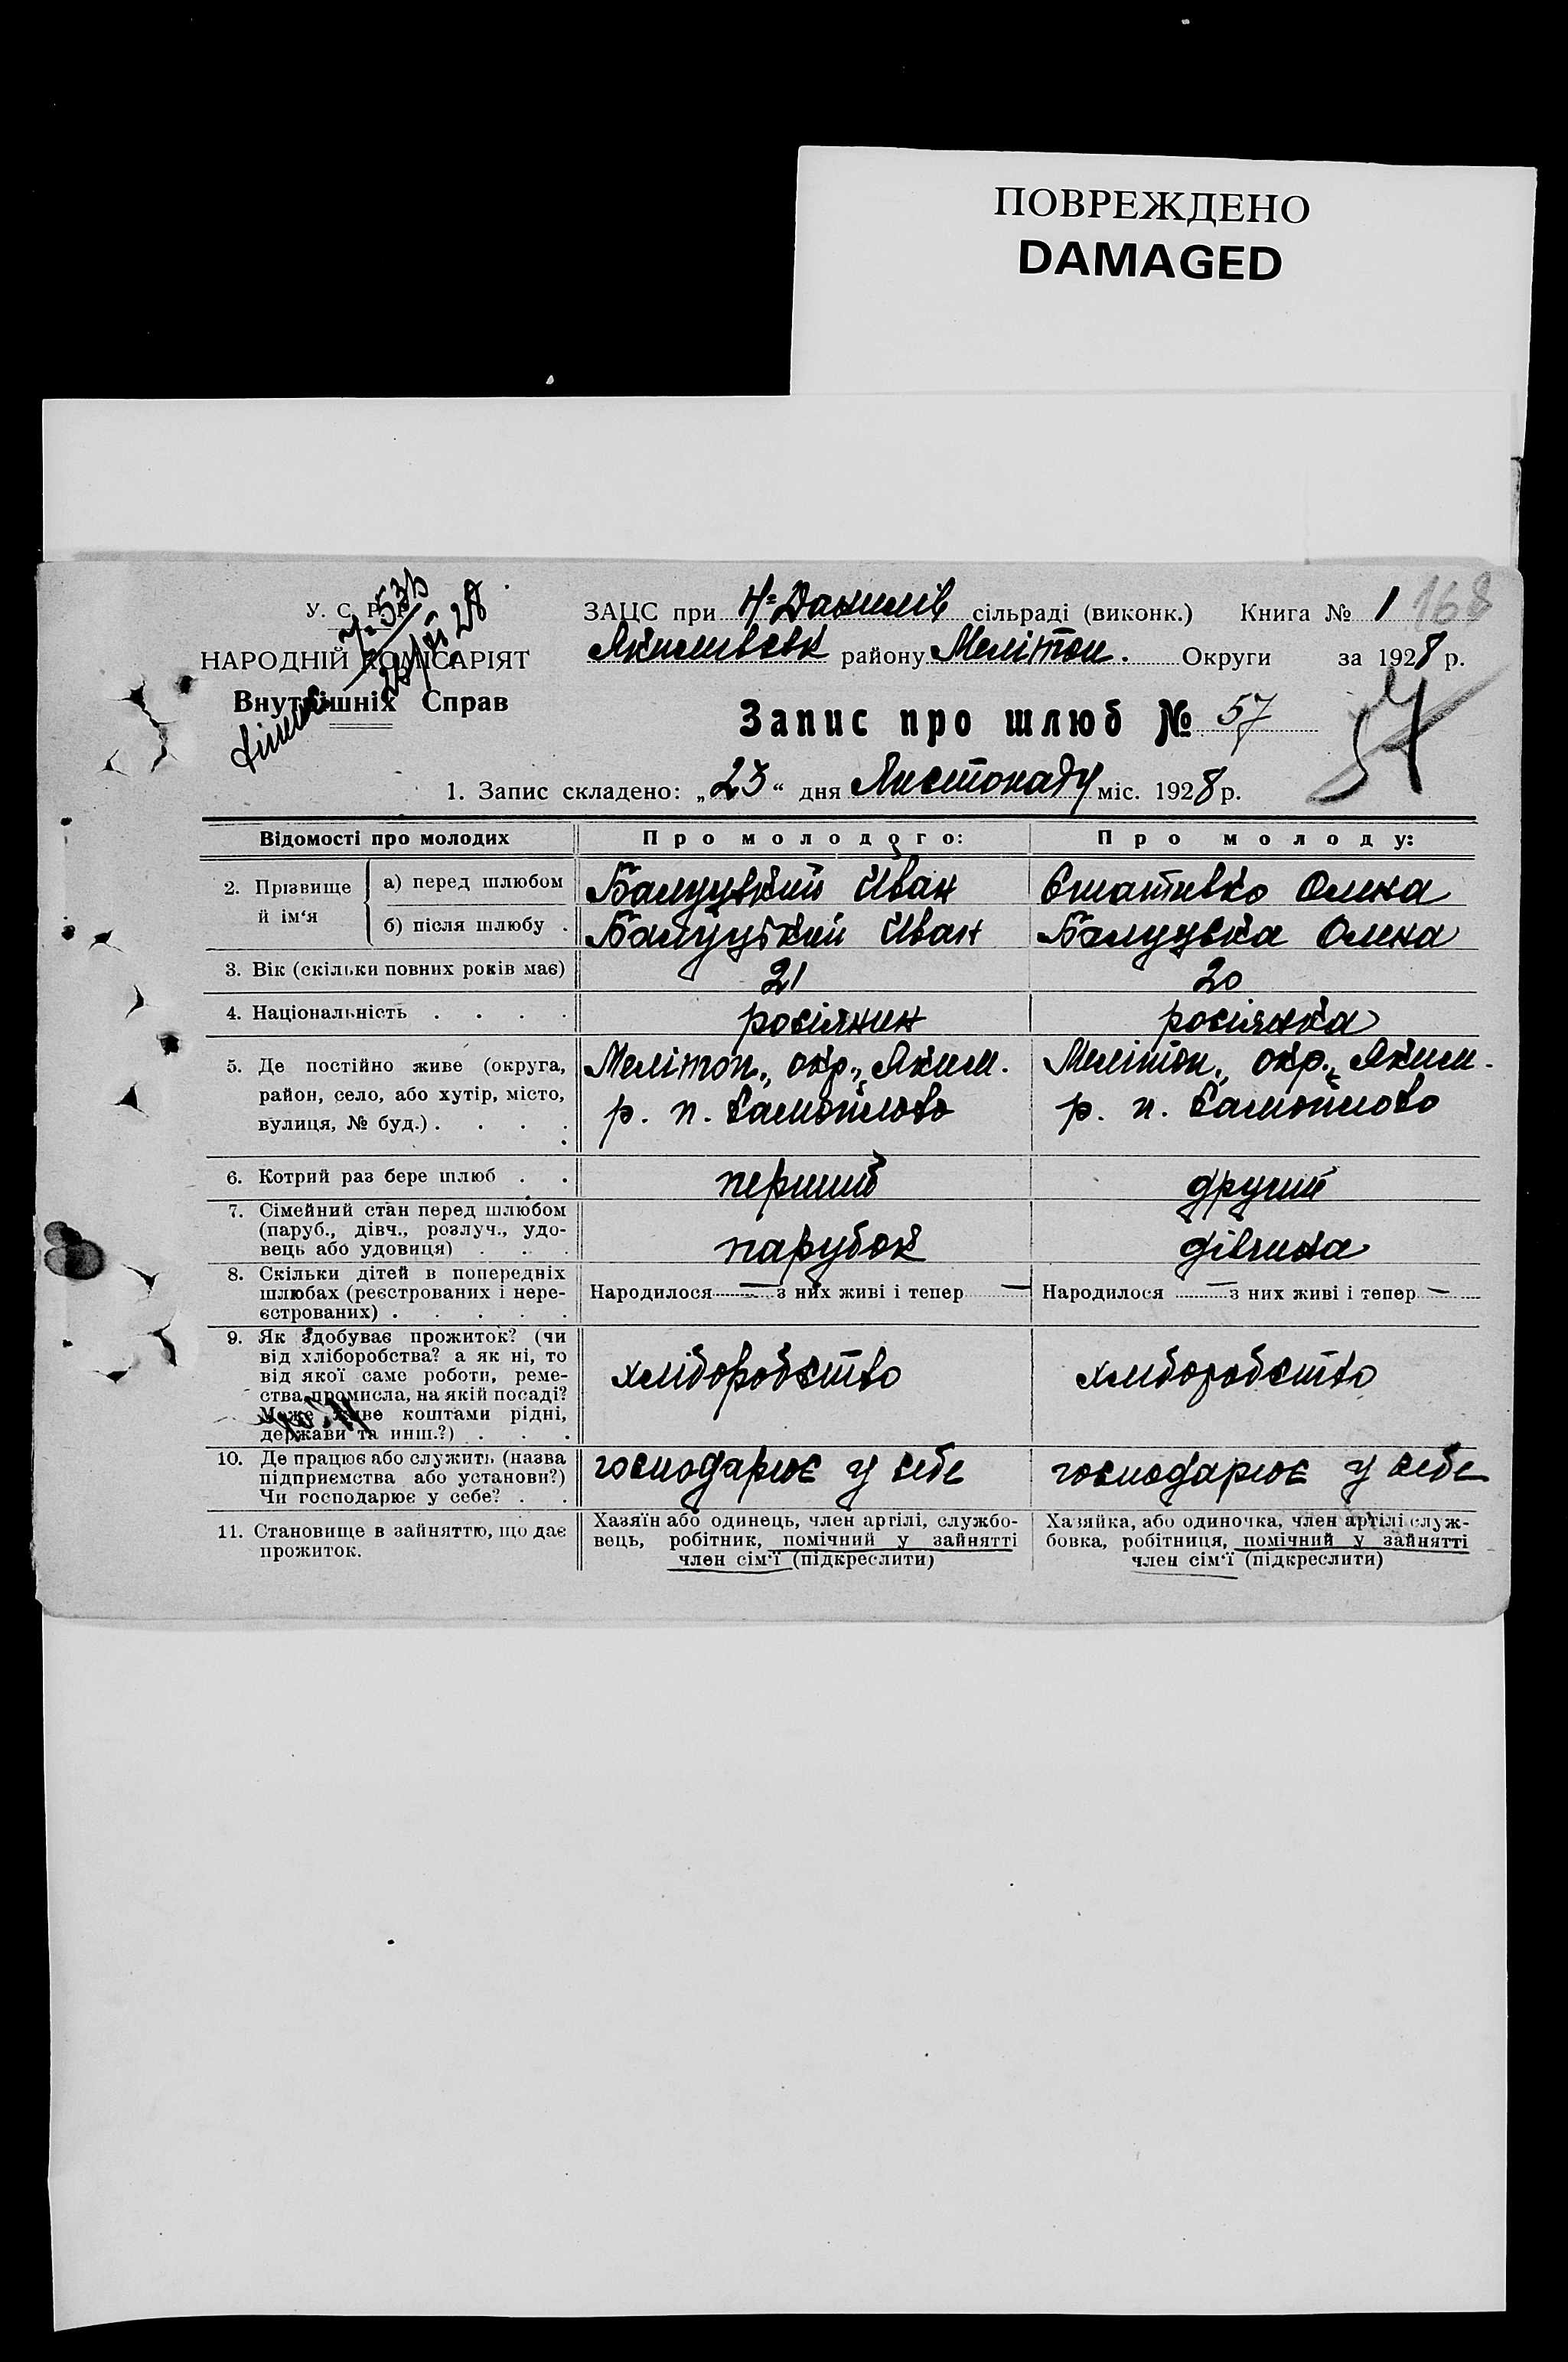 ПОВРЕЖДЕНО
DAMAGED
У. С. Р. Р.
НАРОДНІЙ КОМІСАРІЯТ
Внутрішніх Справ
ЗАЦС при Н=Данилів сільраді (виконк.) Книга № 1 168
Якимивськ району Меліто́п. Округи за 1928 р.
Запис про шлюб № 57
57
1. Запис складено: „23“ дня Листопаду міс. 1928 р.
Відомості про молодих Про молодого: Про молоду:
2. Прізвище й ім‘я
а) перед шлюбом Балуцький Іван Олена
б) після шлюбу . Балуцький Іван Балуцька Олена
3. Вік (скільки повних років має) 21 20
4. Національність . . . . росіянин росіянка
5. Де постійно живе (округа, Мелітоп., окр., Яким. Мелітоп., окр., Яким.
район, село, або хутір, місто, р. п. Самойлово р. п. Самойлово
вулиця, № буд.) . . . .
6. Котрий раз бере шлюб . . перший другий
7. Сімейний стан перед шлюбом
(паруб., дівч., розлуч., удо-
вець або удовиця) . . . парубок дівчина
8. Скільки дітей в попередніх
шлюбах (реєстрованих і нере- Народилося — з них живі і тепер — Народилося — з них живі і тепер —
єстрованих) . . . . .
9. Як здобуває прожиток? (чи
від хліборобства? а як ні, то
від якої саме роботи, реме- хліборобство хліборобство
ства, промисла, на якій посаді?
Може живе коштами рідні,
держави та инш.?) . . .
10. Де працює або служить (назва господарює у себе господарює у себе
підприємства або установи?)
Чи господарює у себе? . .
11. Становище в зайняттю, що дає
прожиток.
Хазяїн або одинець, член артілі, службо-
вець, робітник, помічний у зайнятті
член сім‘ї (підкреслити)
Хазяйка, або одиночка, член артілі служ-
бовка, робітниця, помічний у зайнятті
член сім‘ї (підкреслити)